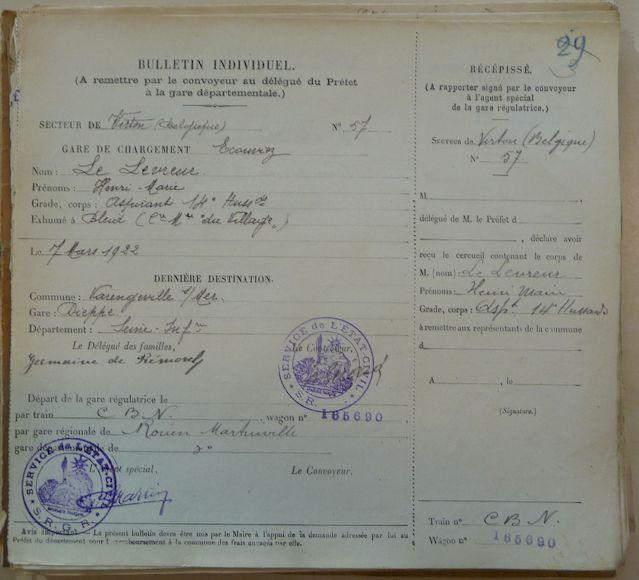 29
BULLETIN INDIVIDUEL.
(A remettre par le convoyeur au délégué du Préfet
à la gare départementale.)
SECTEUR DE Virton (Belgique) N° 57
GARE DE CHARGEMENT Ecouviez
Nom : Le Levreur
Prénoms : Henri-Marie
Grade, corps : Aspirant 14° Huss ds
Exhumé à Bleid (Cre Mre "du Village")
Le 7 Mars 1922
DERNIÈRE DESTINATION.
Commune : Varengeville s/Mer
Gare : Dieppe
Département : Seine Infre
Le Délégué des familles, Le Contrôleur,
Germaine de
Départ de la gare régulatrice le
par train C B N , wagon n° 165690
par gare régionale de Rouen Martinville
gare départementale de do
L'Agent spécial, Le Convoyeur.
SERVICE de L'ÉTAT-CIVIL
S.R.
SERVICE de L'ÉTAT-CIVIL
S.R.G.R.
Avis important. — Le présent bulletin devra être mis par le Maire à l'appui de la demande adressée par lui au
Préfet du département pour le remboursement à la commune des frais engagés par elle.
RÉCÉPISSÉ.
(A rapporter signé par le convoyeur
à l'agent spécial
de la gare régulatrice.)
Secteur de Virton (Belgique)
N° 57
M
délégué de M. le Préfet d
, déclare avoir
reçu le cercueil contenant le corps de
M. (nom) Le Levreur
Prénoms : Henri
Grade, corps : Aspt. 14e Hussards
à remettre aux représentants de la commune
d
A , le
(Signature.)
Train n° C B N.
Wagon n° 165690